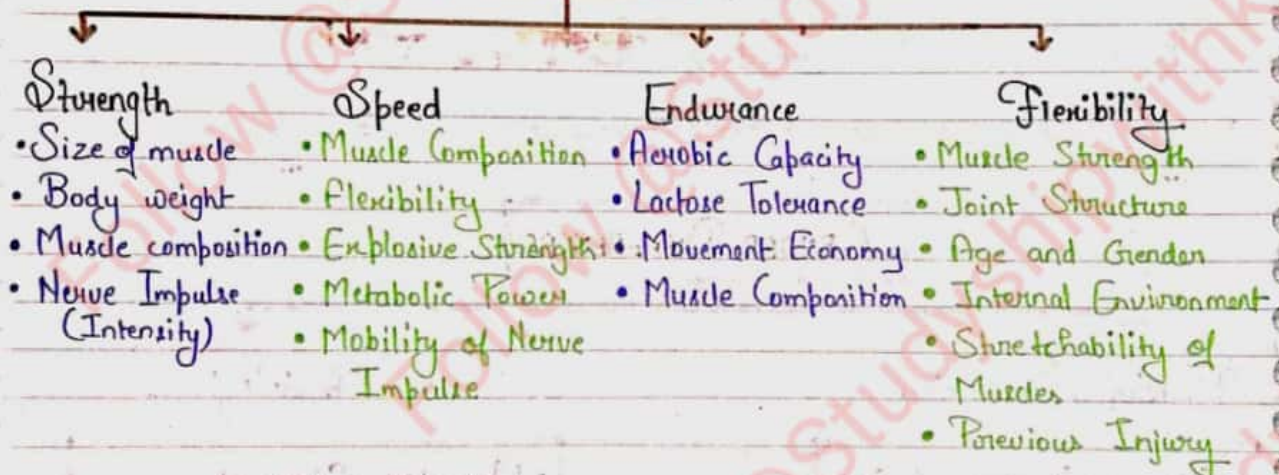 Strength
• Size of muscle
• Body weight
• Muscle composition
• Nerve Impulse
(Intensity)
Speed
• Muscle Composition
• Flexibility
• Explosive Strength
• Metabolic Power
• Mobility of Nerve
Impulse
Endurance
• Aerobic Capacity
• Lactose Tolerance
• Movement Economy
• Muscle Composition
Flexibility
• Muscle Strength
• Joint Structure
• Age and Gender
• Internal Environment
• Stretchability of
Muscles
• Previous Injury
Follow @S
Follow @Study
@Studyshipwithk